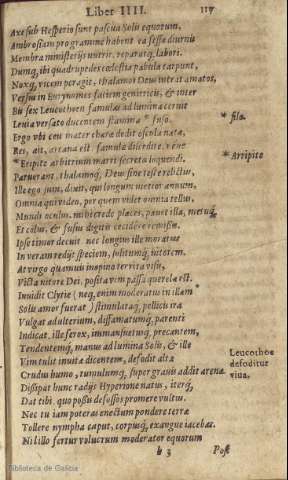 Liber IIII. 117
Axe sub Hesperio sunt pascua Solis equorum,
Ambrosiam pro gramine habent. ea fessa diurnis
Membra ministerijs nutrit, reparatq́; labori.
Dumq́; ibi quadrupedes cœlestia pabula carpunt,
Noxq́; vicem peragit, thalamos Deus intrat amatos,
Versus in Eurynomes faciem genitricis, & inter
Bis sex Leucothoen famulas ad lumina cernit
Lenia versato ducentem stamina * fuso.
* fila.
Ergo vbi ceu mater charæ dedit oscula natæ,
Res, ait, arcana est. famulæ discedite, néue
* Eripite arbitrium matri secreta loquendi.
* Arripite
Paruerant. thalamoq́; Deus sine teste relictus,
Ille ego sum, dixit, qui longum metior annum,
Omnia qui video, per quem videt omnia tellus,
Mundi oculus. mihi crede places. pauet illa, metuq́;
Et colus, & fusus digitis cecidére remissis.
Ipse timor decuit. nec longius ille moratus
In veram redijt speciem, solitumq́; nitorem.
At virgo quamuis inopino territa visu,
Victa nitore Dei, posita vim passa querela est.
Inuidit Clytie (neq́; enim moderatus in illam *
Solis amor fuerat) stimulataq́; pellicis ira
Vulgat adulterium, diffamatumq́; parenti
Indicat. ille ferox, immansuetusq́; precantem,
Tendentemq́; manus ad lumina Solis, & ille
Vim tulit inuitæ dicentem, defodit alta
Leucothoe
defoditur
viua.
Crudus humo, tumulumq́; super grauis addit arenæ.
Dissipat hunc radijs Hyperione natus, iterq́;
Dat tibi, quo possis defossos promere vultus.
Nec tu iam poteras enectum pondere terræ
Tollere nympha caput, corpusq́; exangue iacebas.
Nil illo fertur volucrum moderator equorum
h 3 Post
Biblioteca de Galicia